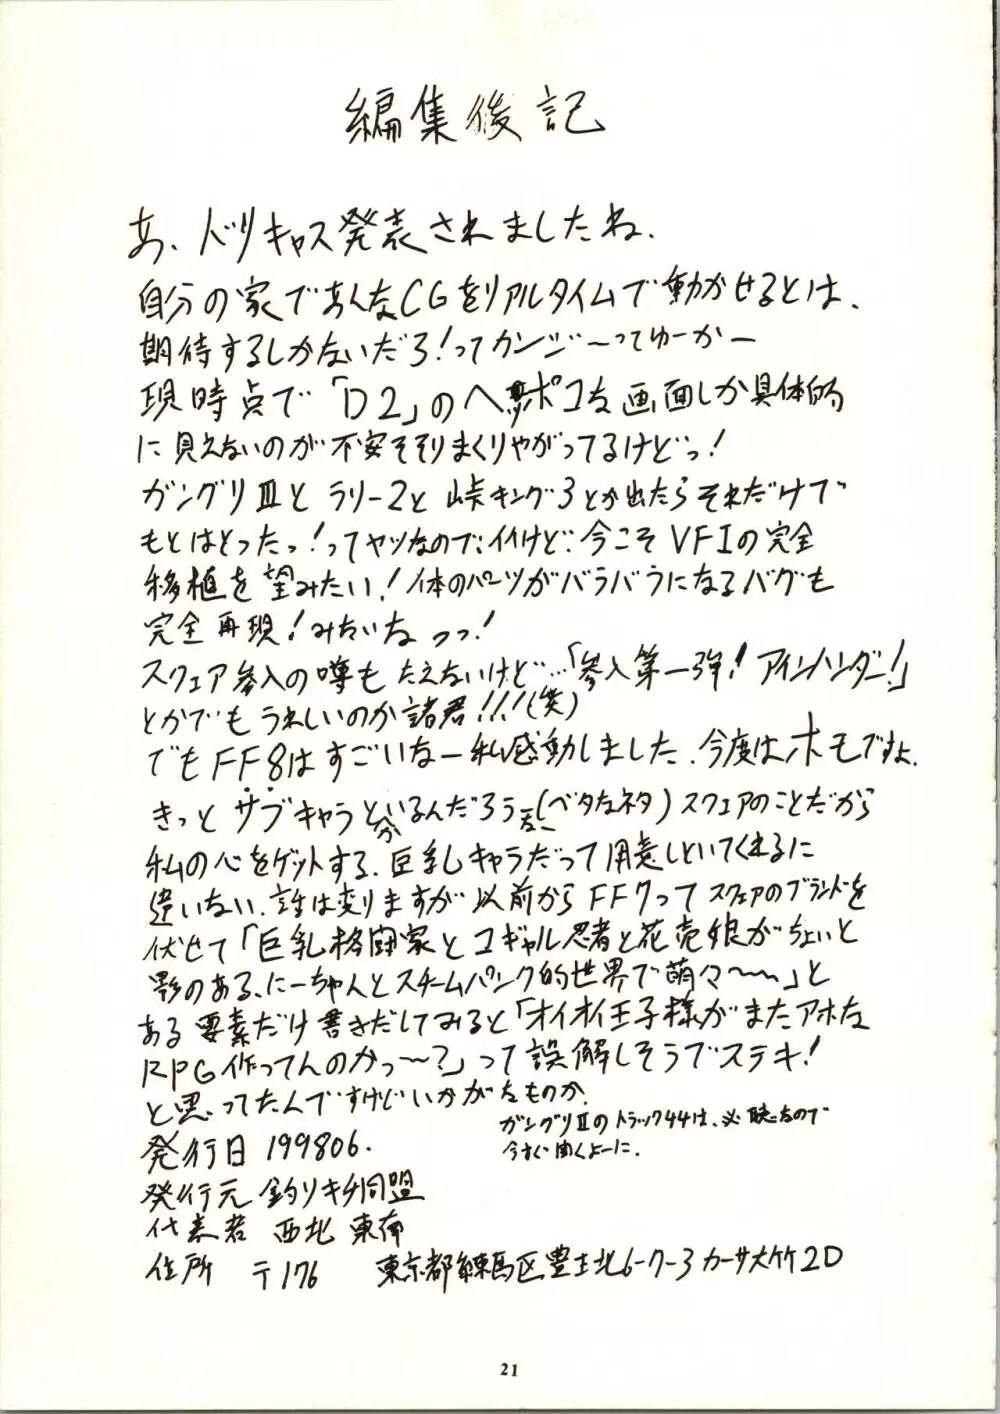 編集後記
あ、ドリキャス発表されましたね.
自分の家であんなCGをリアルタイムで動かせるとは、
期待するしかないだろ!ってカンジ〜ってゆーかー
現時点で「D2」のヘッポコな画面しか具体的
に見えないのが不安そそりまくりやがってるけどっ!
ガングリⅢとラリー2と峠キング3とか出たらそれだけで
もとはとったっ!ってヤツなので、イイけど、今こそVF1の完全
移植を望みたい!体のパーツがバラバラになるバグも
完全再現!みたいなっっ!
スクェア参入の噂もたえないけど…「参入第一弾!アインハンダー!」
とかでもうれしいのか諸君!!!(笑)
でもFF8はすごいなー私感動しました.今度はホモですよ.
きっとサブキャラと分いるんだろう(ベタなネタ)スクェアのことだから
私の心をゲットする、巨乳キャラだって用意しといてくれるに
違いない.話は変りますが以前からFF7ってスクェアのブランドを
伏せて「巨乳格闘家とコギャル忍者と花売娘がちょいと
影のある、にーちゃんとスチームパンク的世界で萌々〜〜」と
ある要素だけ書きだしてみると「オイオイ王子様がまたアホな
RPG作ってんのかっ〜?」って誤解しそうでステキ!
と思ってたんですけどいかがなものか.
ガングリⅡのトラック44は、必聴なので
今すぐ聞くよーに.
発行日 199806.
発行元 釣りキチ同盟
代表者 西北 東南
住所 〒176 東京都練馬区豊玉北6-7-3 カーサ大竹2D
21